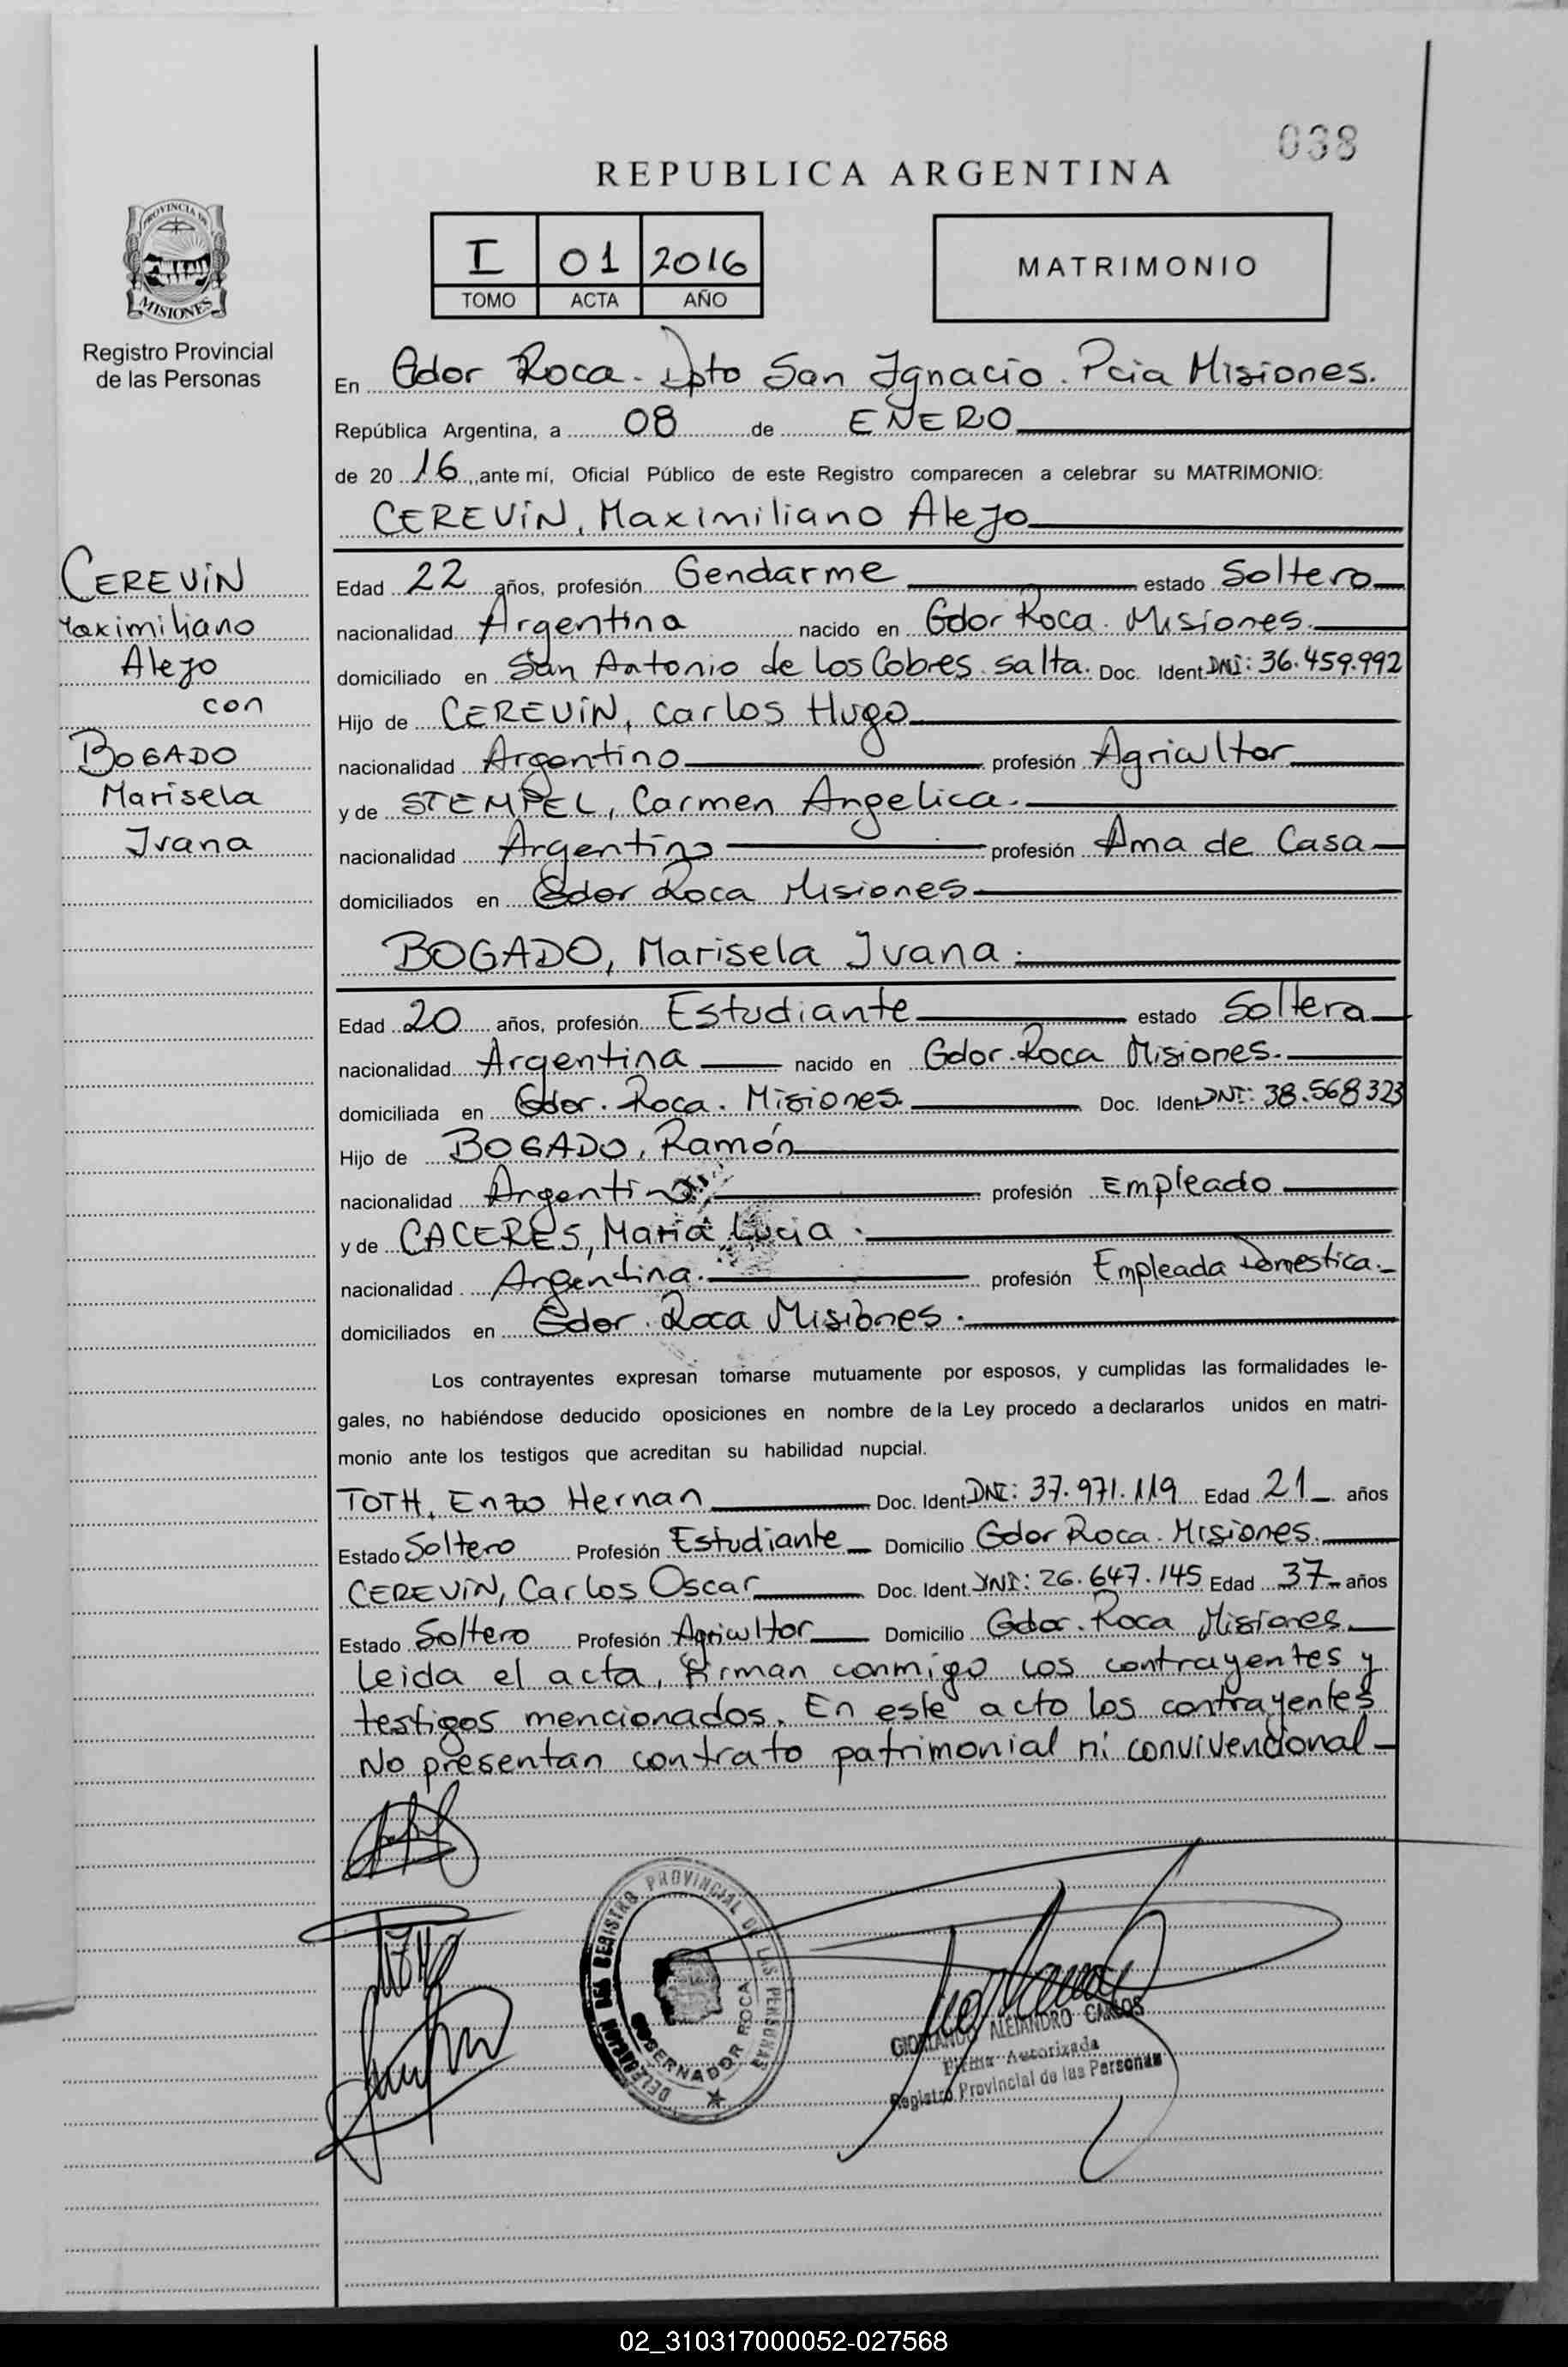 038
REPUBLICA ARGENTINA
I 01 2016
TOMO ACTA AÑO
MATRIMONIO
PROVINCIA DE
MISIONES
Registro Provincial
de las Personas
En Gdor Roca. Dpto San Ignacio. Pcia Misiones.
República Argentina, a 08 de ENERO
de 20 16, ante mí, Oficial Público de este Registro comparecen a celebrar su MATRIMONIO:
CEREVIN, Maximiliano Alejo
CEREVIN
Maximiliano
Alejo
con
BOGADO
Marisela
Ivana
Edad 22 años, profesión Gendarme estado Soltero
nacionalidad Argentina nacido en Gdor Roca. Misiones.
domiciliado en San Antonio de los Cobres. Salta. Doc. Ident DNI: 36.459.992
Hijo de CEREVIN, Carlos Hugo
nacionalidad Argentino profesión Agricultor
y de STEMPEL, Carmen Angelica.
nacionalidad Argentina profesión Ama de Casa
domiciliados en Gdor Roca Misiones
BOGADO, Marisela Ivana.
Edad 20 años, profesión Estudiante estado Soltera
nacionalidad Argentina nacido en Gdor. Roca Misiones.
domiciliada en Gdor. Roca. Misiones. Doc. Ident DNI: 38.568323
Hijo de BOGADO, Ramón
nacionalidad Argentino profesión Empleado
y de CACERES, María Lucia.
nacionalidad Argentina. profesión Empleada Domestica.
domiciliados en Gdor. Roca Misiones.
Los contrayentes expresan tomarse mutuamente por esposos, y cumplidas las formalidades le-
gales, no habiéndose deducido oposiciones en nombre de la Ley procedo a declararlos unidos en matri-
monio ante los testigos que acreditan su habilidad nupcial.
TOTH, Enzo Hernan Doc. Ident DNI: 37.971.119 Edad 21 años
Estado Soltero Profesión Estudiante Domicilio Gdor Roca. Misiones.
CEREVIN, Carlos Oscar Doc. Ident. DNI: 26.647.145 Edad 37 años
Estado Soltero Profesión Agricultor Domicilio Gdor. Roca Misiones.
Leida el acta, firman conmigo los contrayentes y
testigos mencionados. En este acto los contrayentes
No presentan contrato patrimonial ni convivencional
DELEGACION DEL REGISTRO PROVINCIAL DE LAS PERSONAS
GOBERNADOR ROCA
ALEJANDRO CARLOS
Firma Autorizada
Registro Provincial de las Personas
02_310317000052-027568